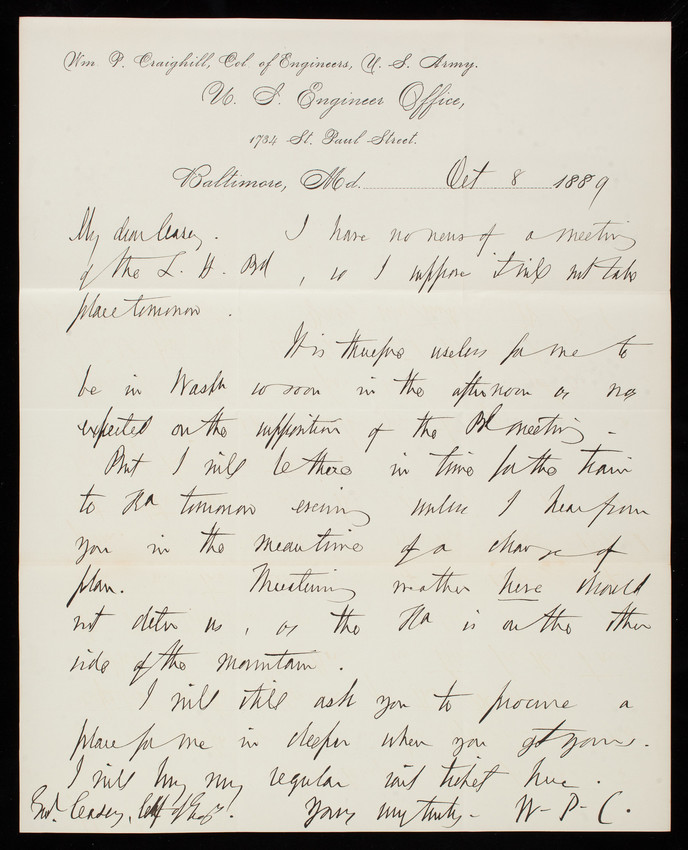 Wm P. Craighill, Col. of Engineers, U. S. Army.
U. S. Engineer Office,
1734 St. Paul Street.
Baltimore, Md. Oct 8 1889
My dear Casey. I have no news of a meeting
of the L. H. Bd, so I suppose it will not take
place tomorrow.
It is therefore useless for me to
be in Wash so soon in the afternoon as was
expected on the supposition of the Bd meeting -
But I will be there in time for the train
to tomorrow evening unless I hear from
you in the meantime of a change of
plan. Threatening weather here should
not deter us, as the is on the other
side of the mountain.
I will still ask you to procure a
place for me in sleeper when you get yours.
I will buy my regular ticket here.
Genl. Casey, Yours very truly - W- P- C.